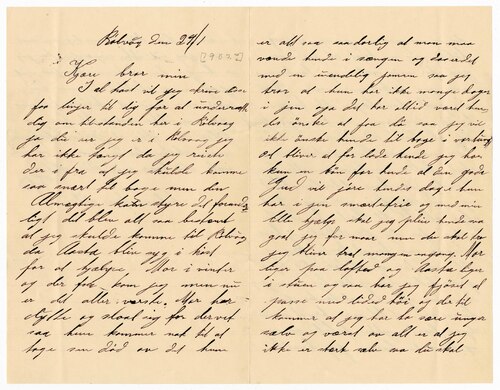 Bolvåg den 29/1
[1903?]
Kjære bror min
I al hast vil jeg skrive disse
faa linjer til dig for at underrette
dig om tilstanden her i Bolvåg
ja du ser jeg er i Bolvåg jeg
har ikke langt da jeg reiste
der i fra at jeg skulde komme
saa snart til bage men den
Almægtige kan styre det forandr
ligt det blev alt saa bestemt
at jeg skulde komme til Bolvåg
da Aasta blev syg i høst
for at hjælpe Mor i vinter
og der for kom jeg men nu
er det aller værste, Mor har
dytte og slaat sig for dervet
saa hun kommer nok til at
tage sin død av det hun
er alt saa daarlig at man maa
vende hende i sængen og da er det
med en uendelig jamren saa jeg
tror at hun har ikke mange dager
i jen og det har altid været hen
des ønske at faa dø saa jeg vil
ikke ønske hende til bage i verden
at bliver at for lade hende jeg har
kun en bøn for hende at den gode
Gud vil jøre hendes dage hun
har i jen smærtefrie og med min
lille hjælp skal jeg pleie hende saa
god jeg for maar men du skal tro
jeg bliver træt mangen engang. Mor
ligger paa loftet og Aasta ligger
i stuen og saa har jeg fjøset at
passe med lidet høi og der til
kommer at jeg har to smaa unger
selv og værst av alt er at jeg
ikke er stærk selv saa du skal